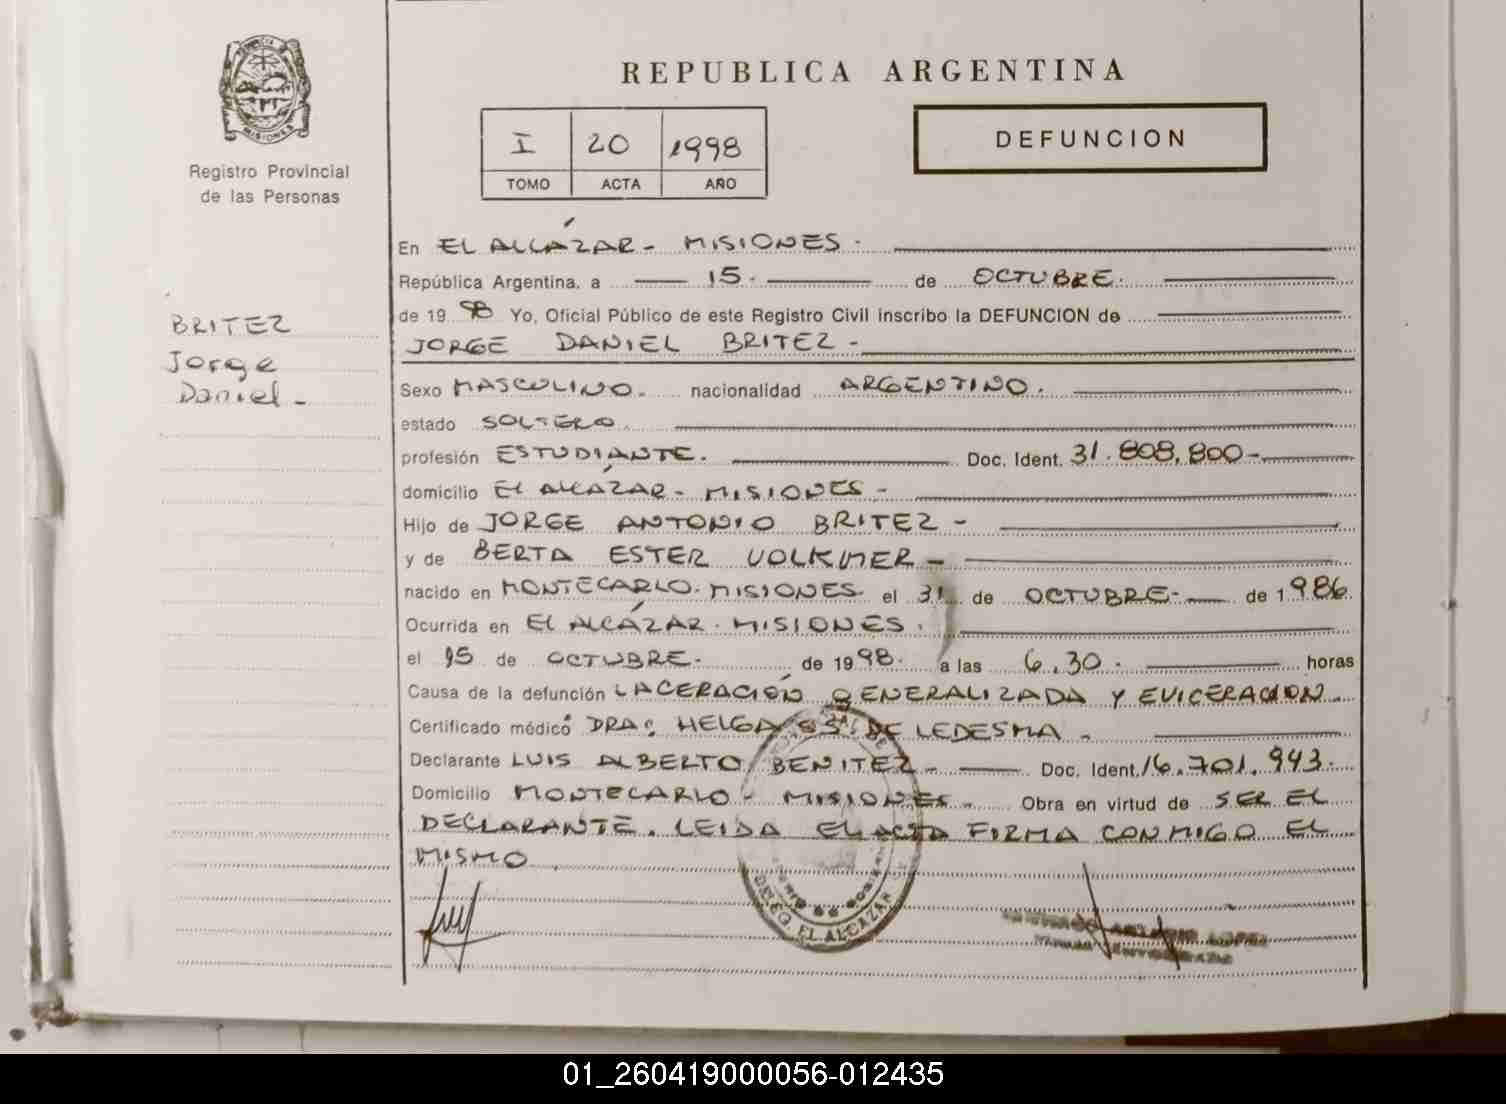 PROVINCIA DE
MISIONES
Registro Provincial
de las Personas
BRITEZ
Jorge
Daniel -
REPUBLICA ARGENTINA
I 20 1998
TOMO ACTA AÑO
DEFUNCION
En EL ALCÁZAR - MISIONES.
República Argentina, a 15. de OCTUBRE.
de 19 98 Yo, Oficial Público de este Registro Civil inscribo la DEFUNCION de
JORGE DANIEL BRITEZ -
Sexo MASCULINO. nacionalidad ARGENTINO.
estado SOLTERO.
profesión ESTUDIANTE. Doc. Ident. 31.808.800-
domicilio El ALCÁZAR - MISIONES -
Hijo de JORGE ANTONIO BRITEZ -
y de BERTA ESTER VOLKMER -
nacido en MONTECARLO. MISIONES el 31 de OCTUBRE. de 1986.
Ocurrida en El ALCÁZAR. MISIONES.
el 15 de OCTUBRE. de 1998. a las 6.30. horas
Causa de la defunción LACERACIÓN GENERALIZADA Y EVICERACION.
Certificado médico DRA: HELGA DE LEDESMA -
Declarante LUIS ALBERTO BENITEZ - Doc. Ident. 16.701.943.
Domicilio MONTECARLO - MISIONES - Obra en virtud de SER EL
DECLARANTE. LEIDA EL ACTA FIRMA CONMIGO EL
MISMO
DELEG. EL ALCAZAR
01_260419000056-012435